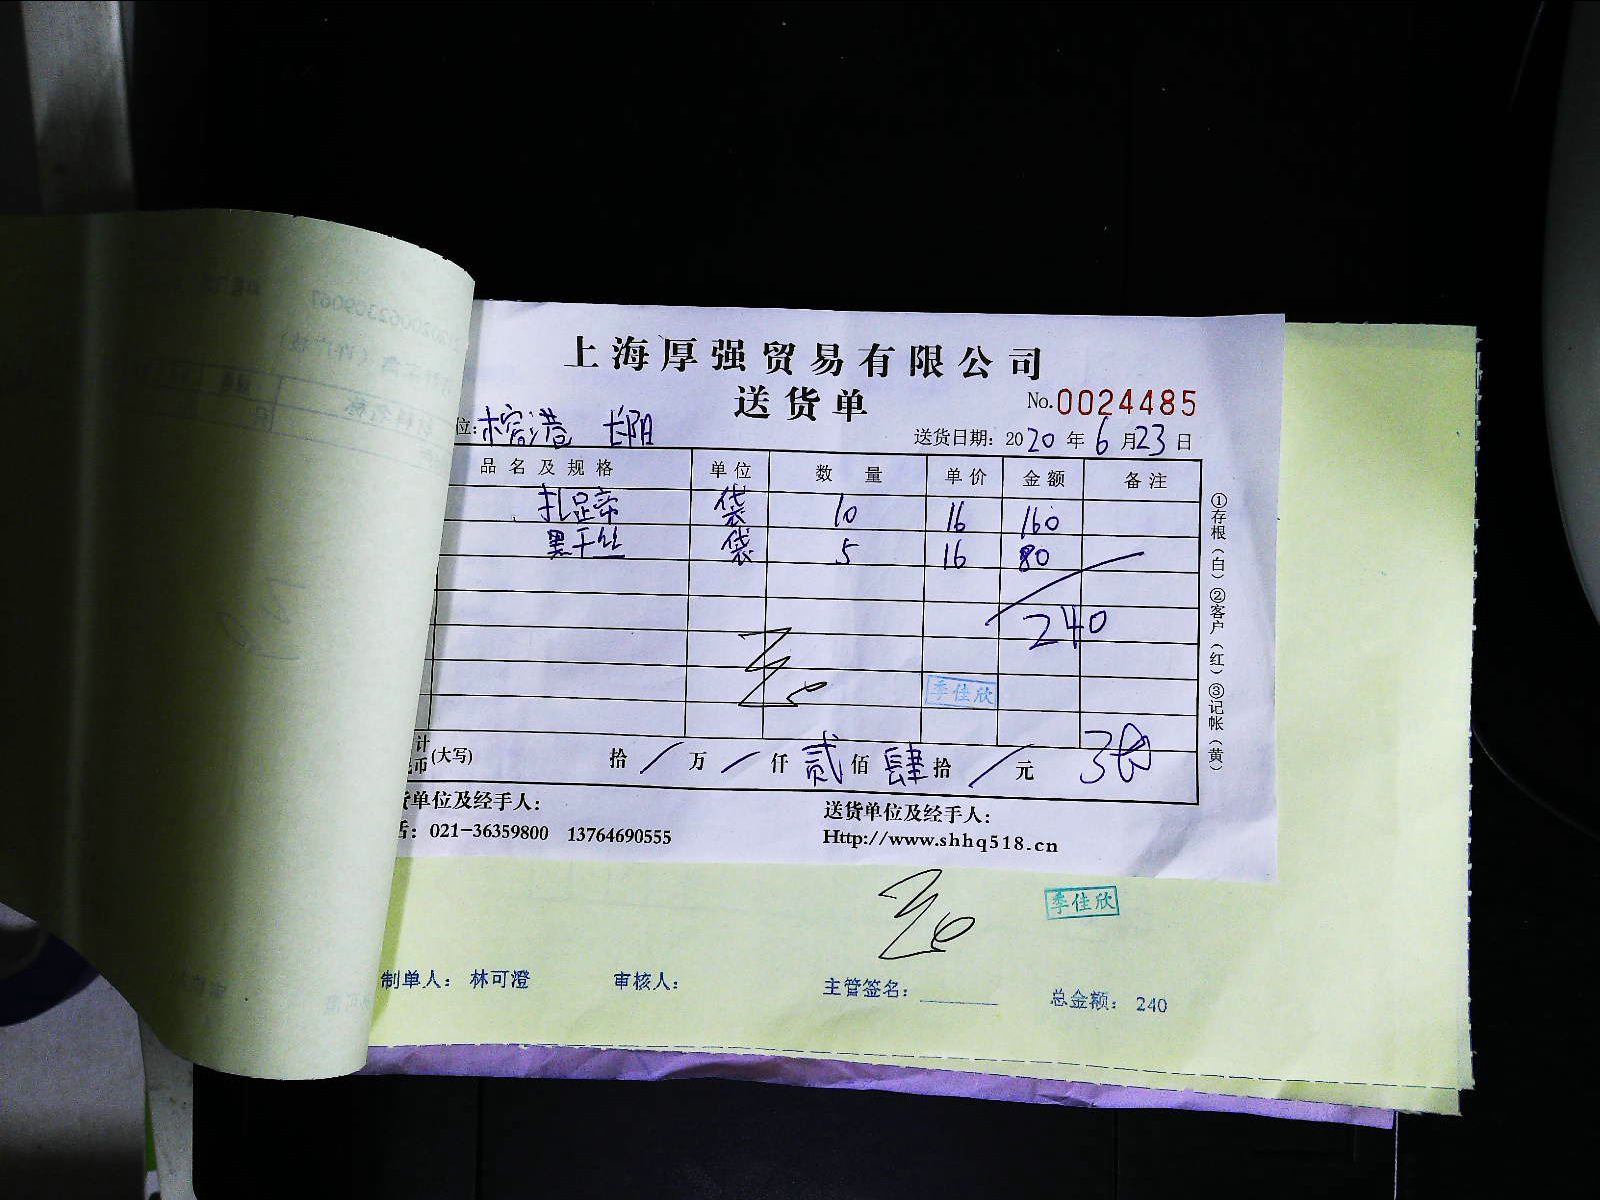 上海厚强贸易有限公司
送货单
No.0024485
位: 榕港 长阳
送货日期: 2020 年 6 月 23 日
品名及规格 单位 数量 单价 金额 备注
扎蹄 袋 10 16 160
黑干丝 袋 5 16 80
240
季佳欣
计 (大写) 拾 / 万 / 仟 贰 佰 肆 拾 / 元
币
货单位及经手人:
送货单位及经手人:
话: 021-36359800 13764690555
Http://www.shhq518.cn
①存根(白)②客户(红)③记帐(黄)
季佳欣
制单人: 林可澄 审核人: 主管签名: 总金额: 240